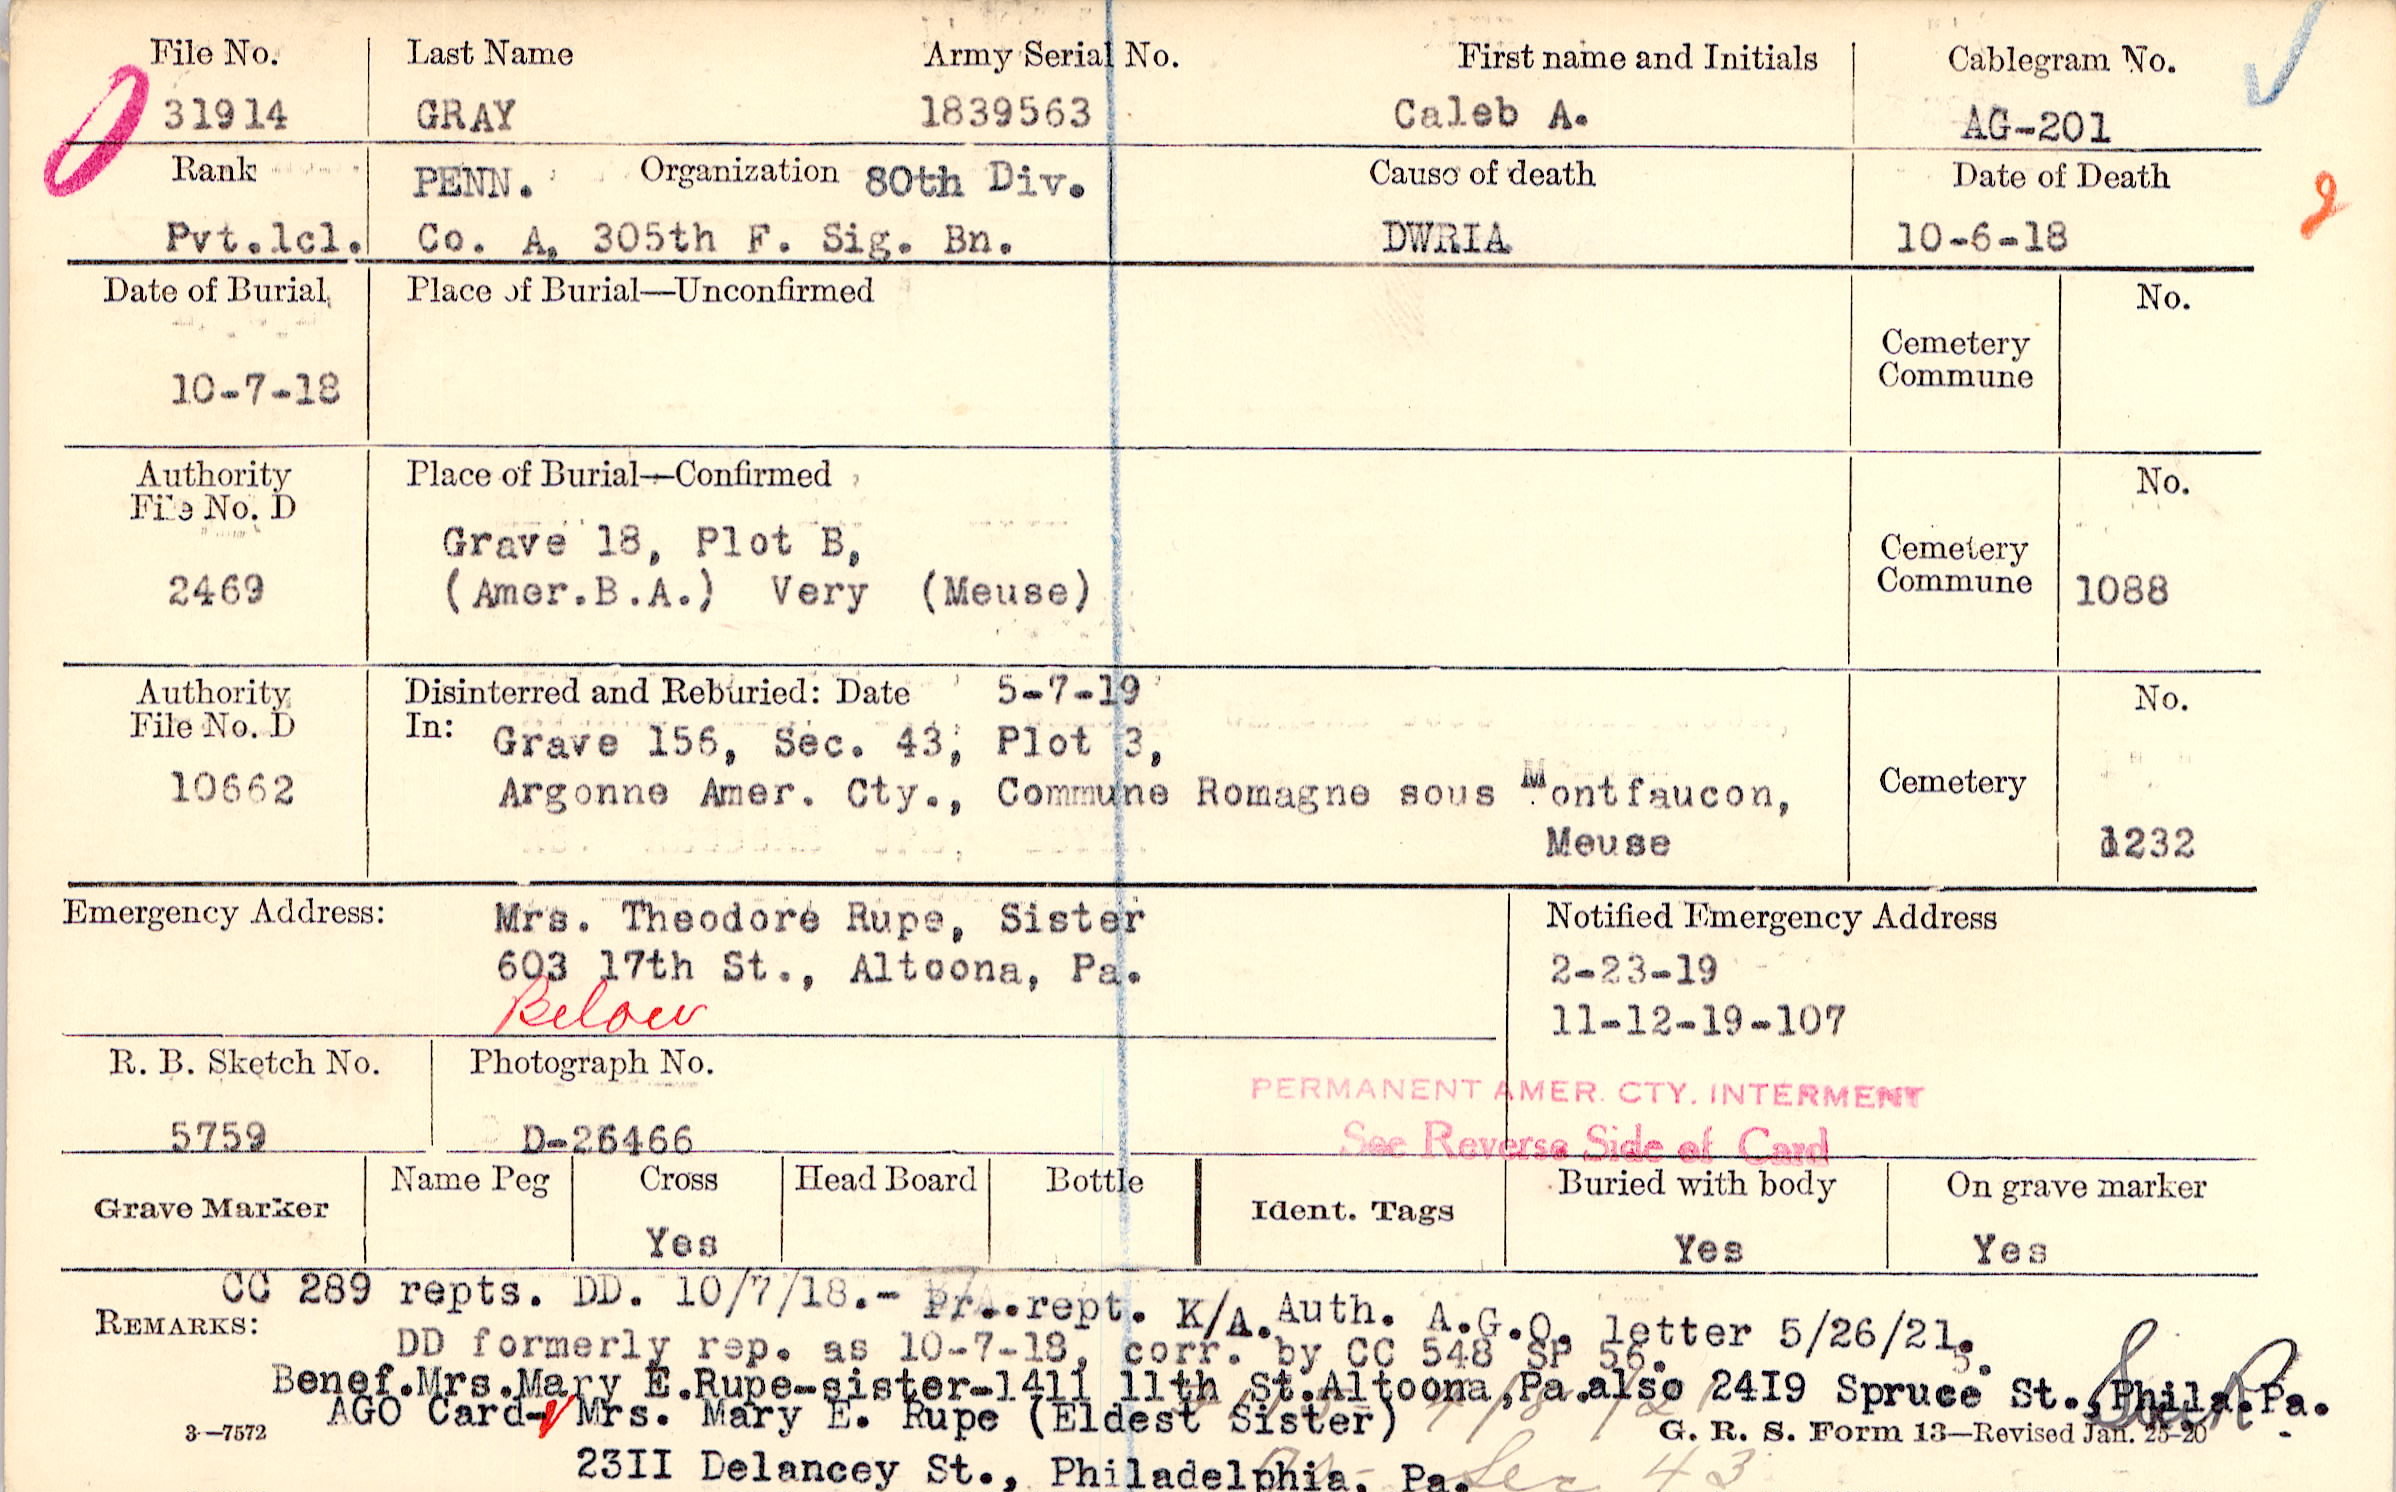 File No. Last Name Army Serial No. First name and Initials Cablegram No.
31914 GRAY 1839563 Caleb A. AG-201
Rank PENN. Organization 80th Div. Cause of death Date of Death
Pvt.1cl. Co. A, 305th F. Sig. Bn. DWRIA 10-6-18
Date of Burial Place of Burial—Unconfirmed No.
Cemetery
Commune
10-7-18
Authority Place of Burial—Confirmed No.
File No. D
Grave 18, Plot B, Cemetery
2469 (Amer.B.A.) Very (Meuse) Commune 1088
Authority Disinterred and Reburied: Date 5-7-19 No.
File No. D In: Grave 156, Sec. 43, Plot 3,
10662 Argonne Amer. Cty., Commune Romagne sous Montfaucon, Cemetery
Meuse 1232
Emergency Address: Mrs. Theodore Rupe, Sister Notified Emergency Address
603 17th St., Altoona, Pa. 2-23-19
Below 11-12-19-107
R. B. Sketch No. Photograph No.
PERMANENT AMER. CTY. INTERMENT
5759 D-26466 See Reverse Side of Card
Grave Marker Name Peg Cross Head Board Bottle Ident. Tags Buried with body On grave marker
Yes Yes Yes
CC 289 repts. DD. 10/7/18.- Pr..rept. K/A. Auth. A.G.O. letter 5/26/21.
REMARKS: DD formerly rep. as 10-7-18, corr. by CC 548 SP 56.
Benef.Mrs.Mary E.Rupe-sister-1411 11th St.Altoona,Pa.also 24I9 Spruce St.,Phila.Pa.
AGO Card- Mrs. Mary E. Rupe (Eldest Sister)
3—7572 G. R. S. Form 13—Revised Jan. 25-20
23II Delancey St., Philadelphia, Pa.
Sec 43